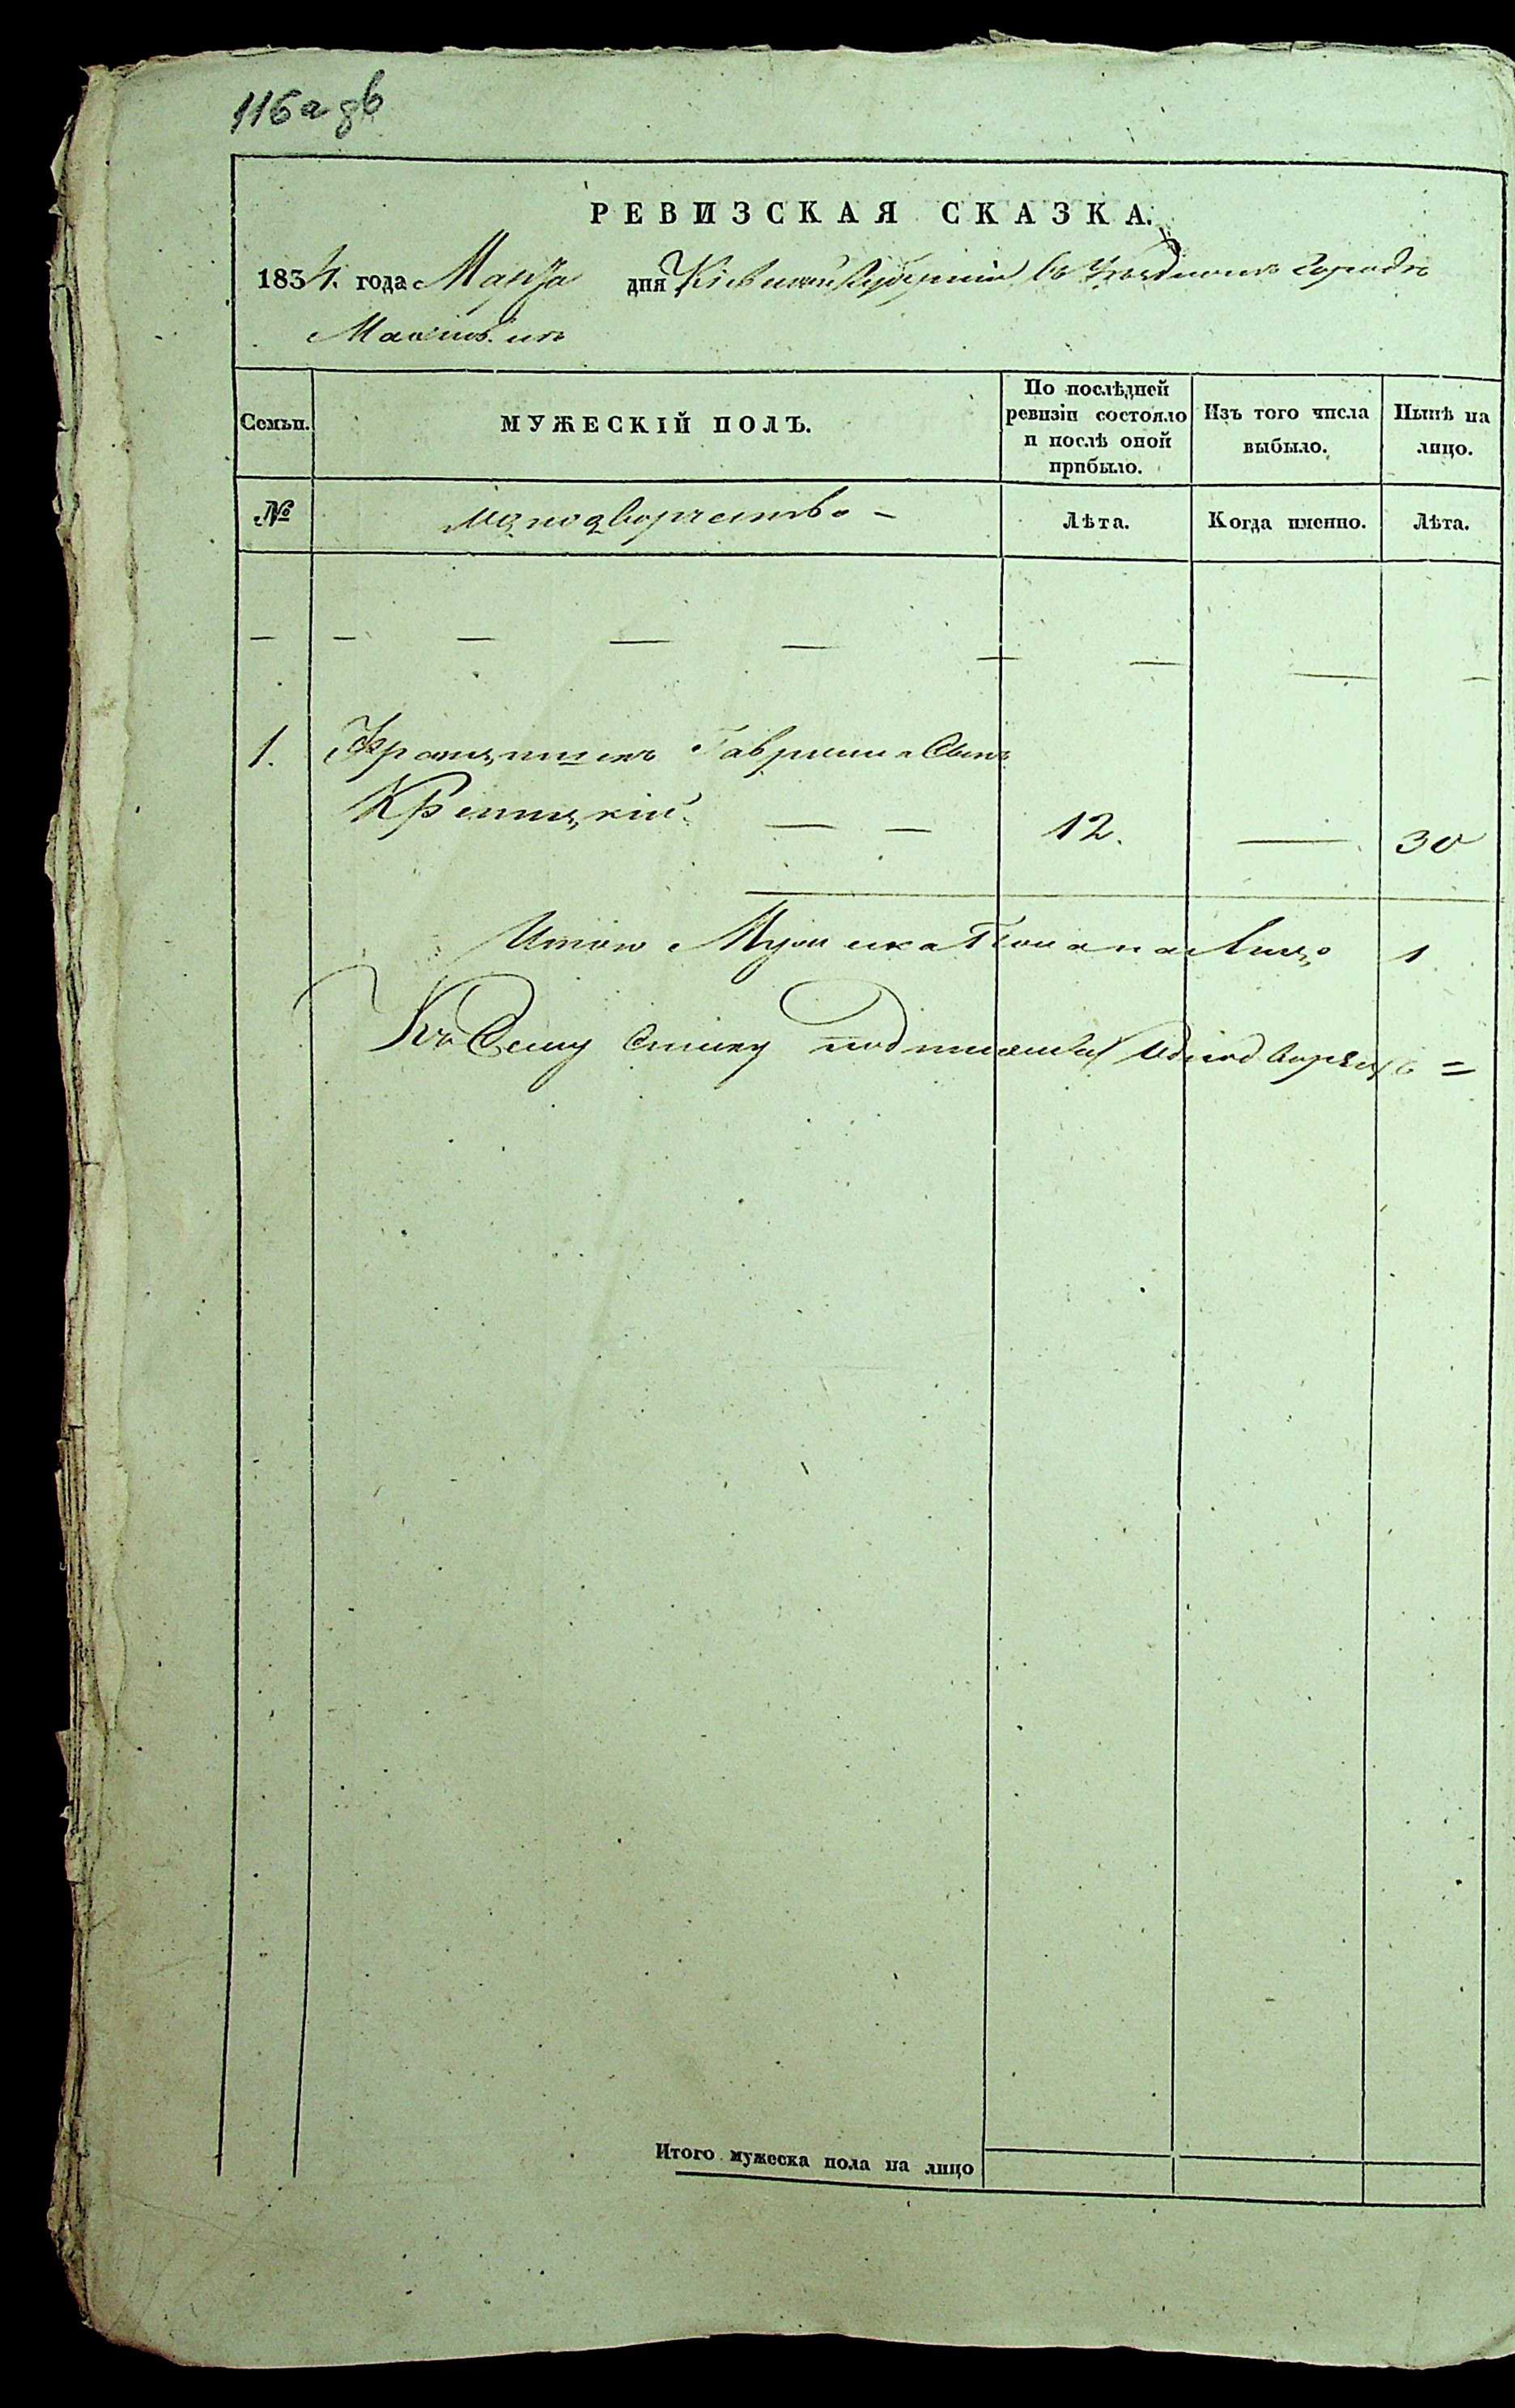 116а дв
РЕВИЗСКАЯ СКАЗКА.
1834. года Марта дня Кіевской Губерніи въ Уездномъ Городѣ
Семьи.
МУЖЕСКІЙ ПОЛЪ.
По послѣдней
ревизіи состояло
и послѣ оной
прибыло.
Изъ того числа
выбыло.
Нынѣ на
лицо.
№
Лѣта.
Когда именно.
Лѣта.
1. Францишекъ Гаврилов Сынъ
12. 30
Итого Мужеска Пола на Лицо 1
Къ Сему подписался
Итого мужеска пола на лицо